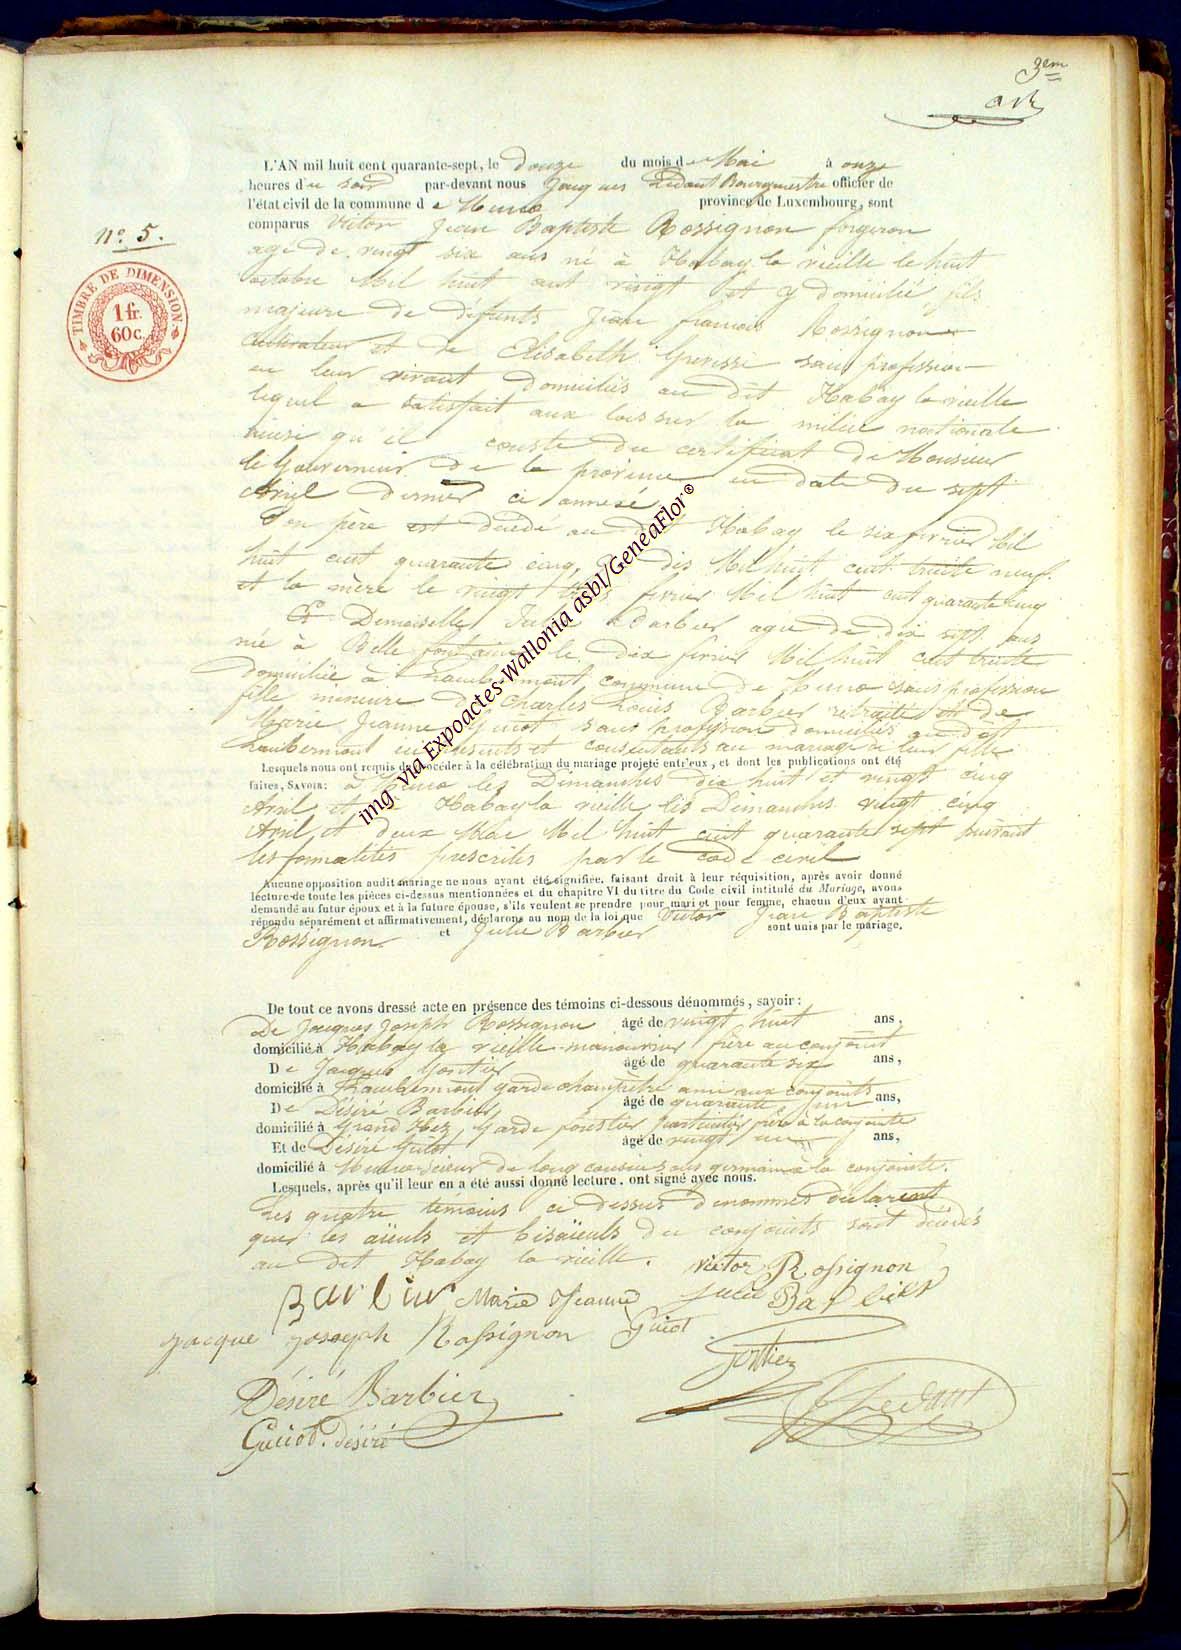 3em
N° 5.
TIMBRE DE DIMENSION
1 fr.
60 c.
L'AN mil huit cent quarante-sept, le Douze du mois de Mai à onze
heures du soir par-devant nous Jacques Ledant Bourgmestre officier de
l'état civil de la commune de Muno province de Luxembourg, sont
comparus Victor Jean Baptiste Rossignon forgeron
agé de vingt six ans né à Habay la vieille le huit
octobre Mil huit cent vingt et y domicilié, fils
majeure de défunts Jean francois Rossignon
cultivateur et de Elisabeth sans profession
en leur vivant domiciliés au dit Habay la vieille
lequel a satisfait aux lois sur la milice nationale
ainsi qu'il conste du certificat de Monsieur
le Gouverneur de la province en date du sept
Avril dernier ci annexé
Son père est décédé au dit Habay le six février Mil
huit cent quarante cinq, dix Mil huit cent trente neuf.
et la mère le vingt trois février Mil huit cent quarante cinq
Et Demoiselle Julie Barbier agée de dix sept ans
née à Belle fontaine le dix février Mil huit cent trente
domiciliée à Lambermont commune de Muno sans profession
fille mineure de Charles Louis Barbier retraité et de
Marie Jeanne Guiot sans profession domiciliés au dit
Lambermont ici présents et consentants au mariage de leur fille
Lesquels nous ont requis de procéder à la célébration du mariage projeté entr'eux, et dont les publications ont été
faites, SAVOIR: à Muno les Dimanches dix huit et vingt cinq
Avril et à Habay la vieille les Dimanches vingt cinq
Avril et deux Mai Mil huit cent quarante sept suivant
les formalités prescrites par le code civil
Aucune opposition audit mariage ne nous ayant été signifiée, faisant droit à leur réquisition, après avoir donné
lecture de toute les pièces ci-dessus mentionnées et du chapitre VI du titre du Code civil intitulé du Mariage, avons
demandé au futur époux et à la future épouse, s'ils veulent se prendre pour mari et pour femme, chacun d'eux ayant
répondu séparément et affirmativement, déclarons au nom de la loi que Victor Jean Baptiste
Rossignon et Julie Barbier sont unis par le mariage.
De tout ce avons dressé acte en présence des témoins ci-dessous dénommés, savoir:
De Jacques Joseph Rossignon âgé de vingt huit ans,
domicilié à Habay la vieille manouvrier frère au conjoint
De Jacques Gontier âgé de quarante six ans,
domicilié à Lambermont garde champêtre ami aux conjoints
De Désiré Barbier âgé de quarante un ans,
domicilié à Grand Hez, Garde forestier particulier frère à la conjointe
Et de Désiré Guiot âgé de vingt un ans,
domicilié à Muno scieur de long cousin sous germain à la conjointe.
Lesquels, après qu'il leur en a été aussi donné lecture, ont signé avec nous.
Les quatre témoins ci dessus denommés déclarent
que les aïeuls et bisaïeuls du conjoints sont décédés
au dit Habay la vieille. victor Rossignon
Barbier Marie Jeanne Julie Barbier
Jacque Joseph Rossignon Guiot
Gontier
Désiré Barbier
J Ledant
Guiot. désiré
img via Expoactes-Wallonia asbl/GeneaFlor®